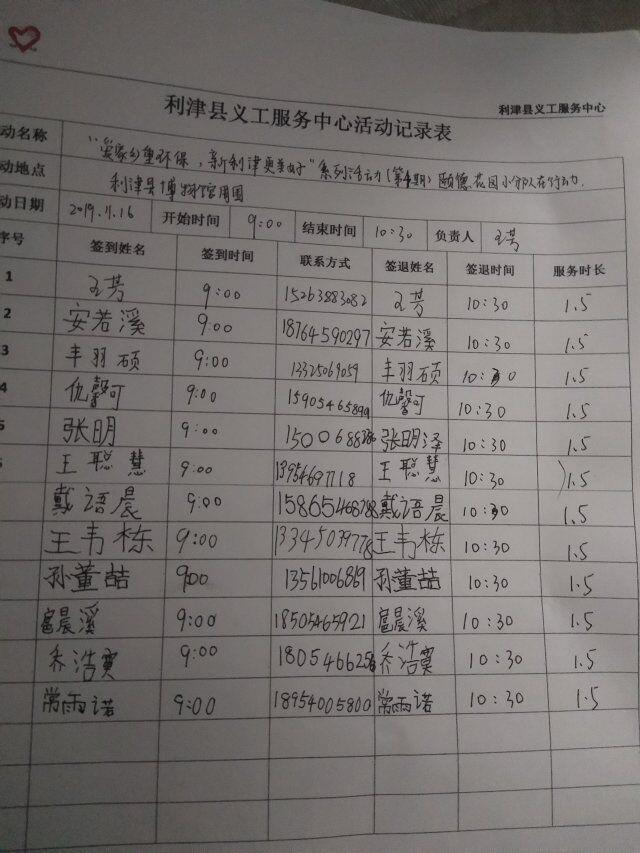 利津县义工服务中心
利津县义工服务中心活动记录表
动名称 "爱家乡重环保，新利津更美好"系列活动(第4期)颐德花园小分队在行动.
动地点 利津县博物馆周围
动日期 2019.11.16 开始时间 9:00 结束时间 10:30 负责人 王芳
序号 签到姓名 签到时间 联系方式 签退姓名 签退时间 服务时长
1 王芳 9:00 15263883082 王芳 10:30 1.5
2 安若溪 9:00 18764590297 安若溪 10:30 1.5
3 丰羽硕 9:00 13325069059 丰羽硕 10:30 1.5
4 仇馨可 9:00 仇馨可 10:30 1.5
5 张明 9:00 张明泽 10:30 1.5
王聪慧 9:00 13954697718 王聪慧 10:30 1.5
戴语晨 9:00 戴语晨 10:30 1.5
王韦栋 9:00 王韦栋 10:30 1.5
孙董喆 9:00 13561006869 孙董喆 10:30 1.5
扈晨溪 9:00 18505465921 扈晨溪 10:30 1.5
乔浩寞 9:00 乔浩寞 10:30 1.5
常雨诺 9:00 18954005800 常雨诺 10:30 1.5